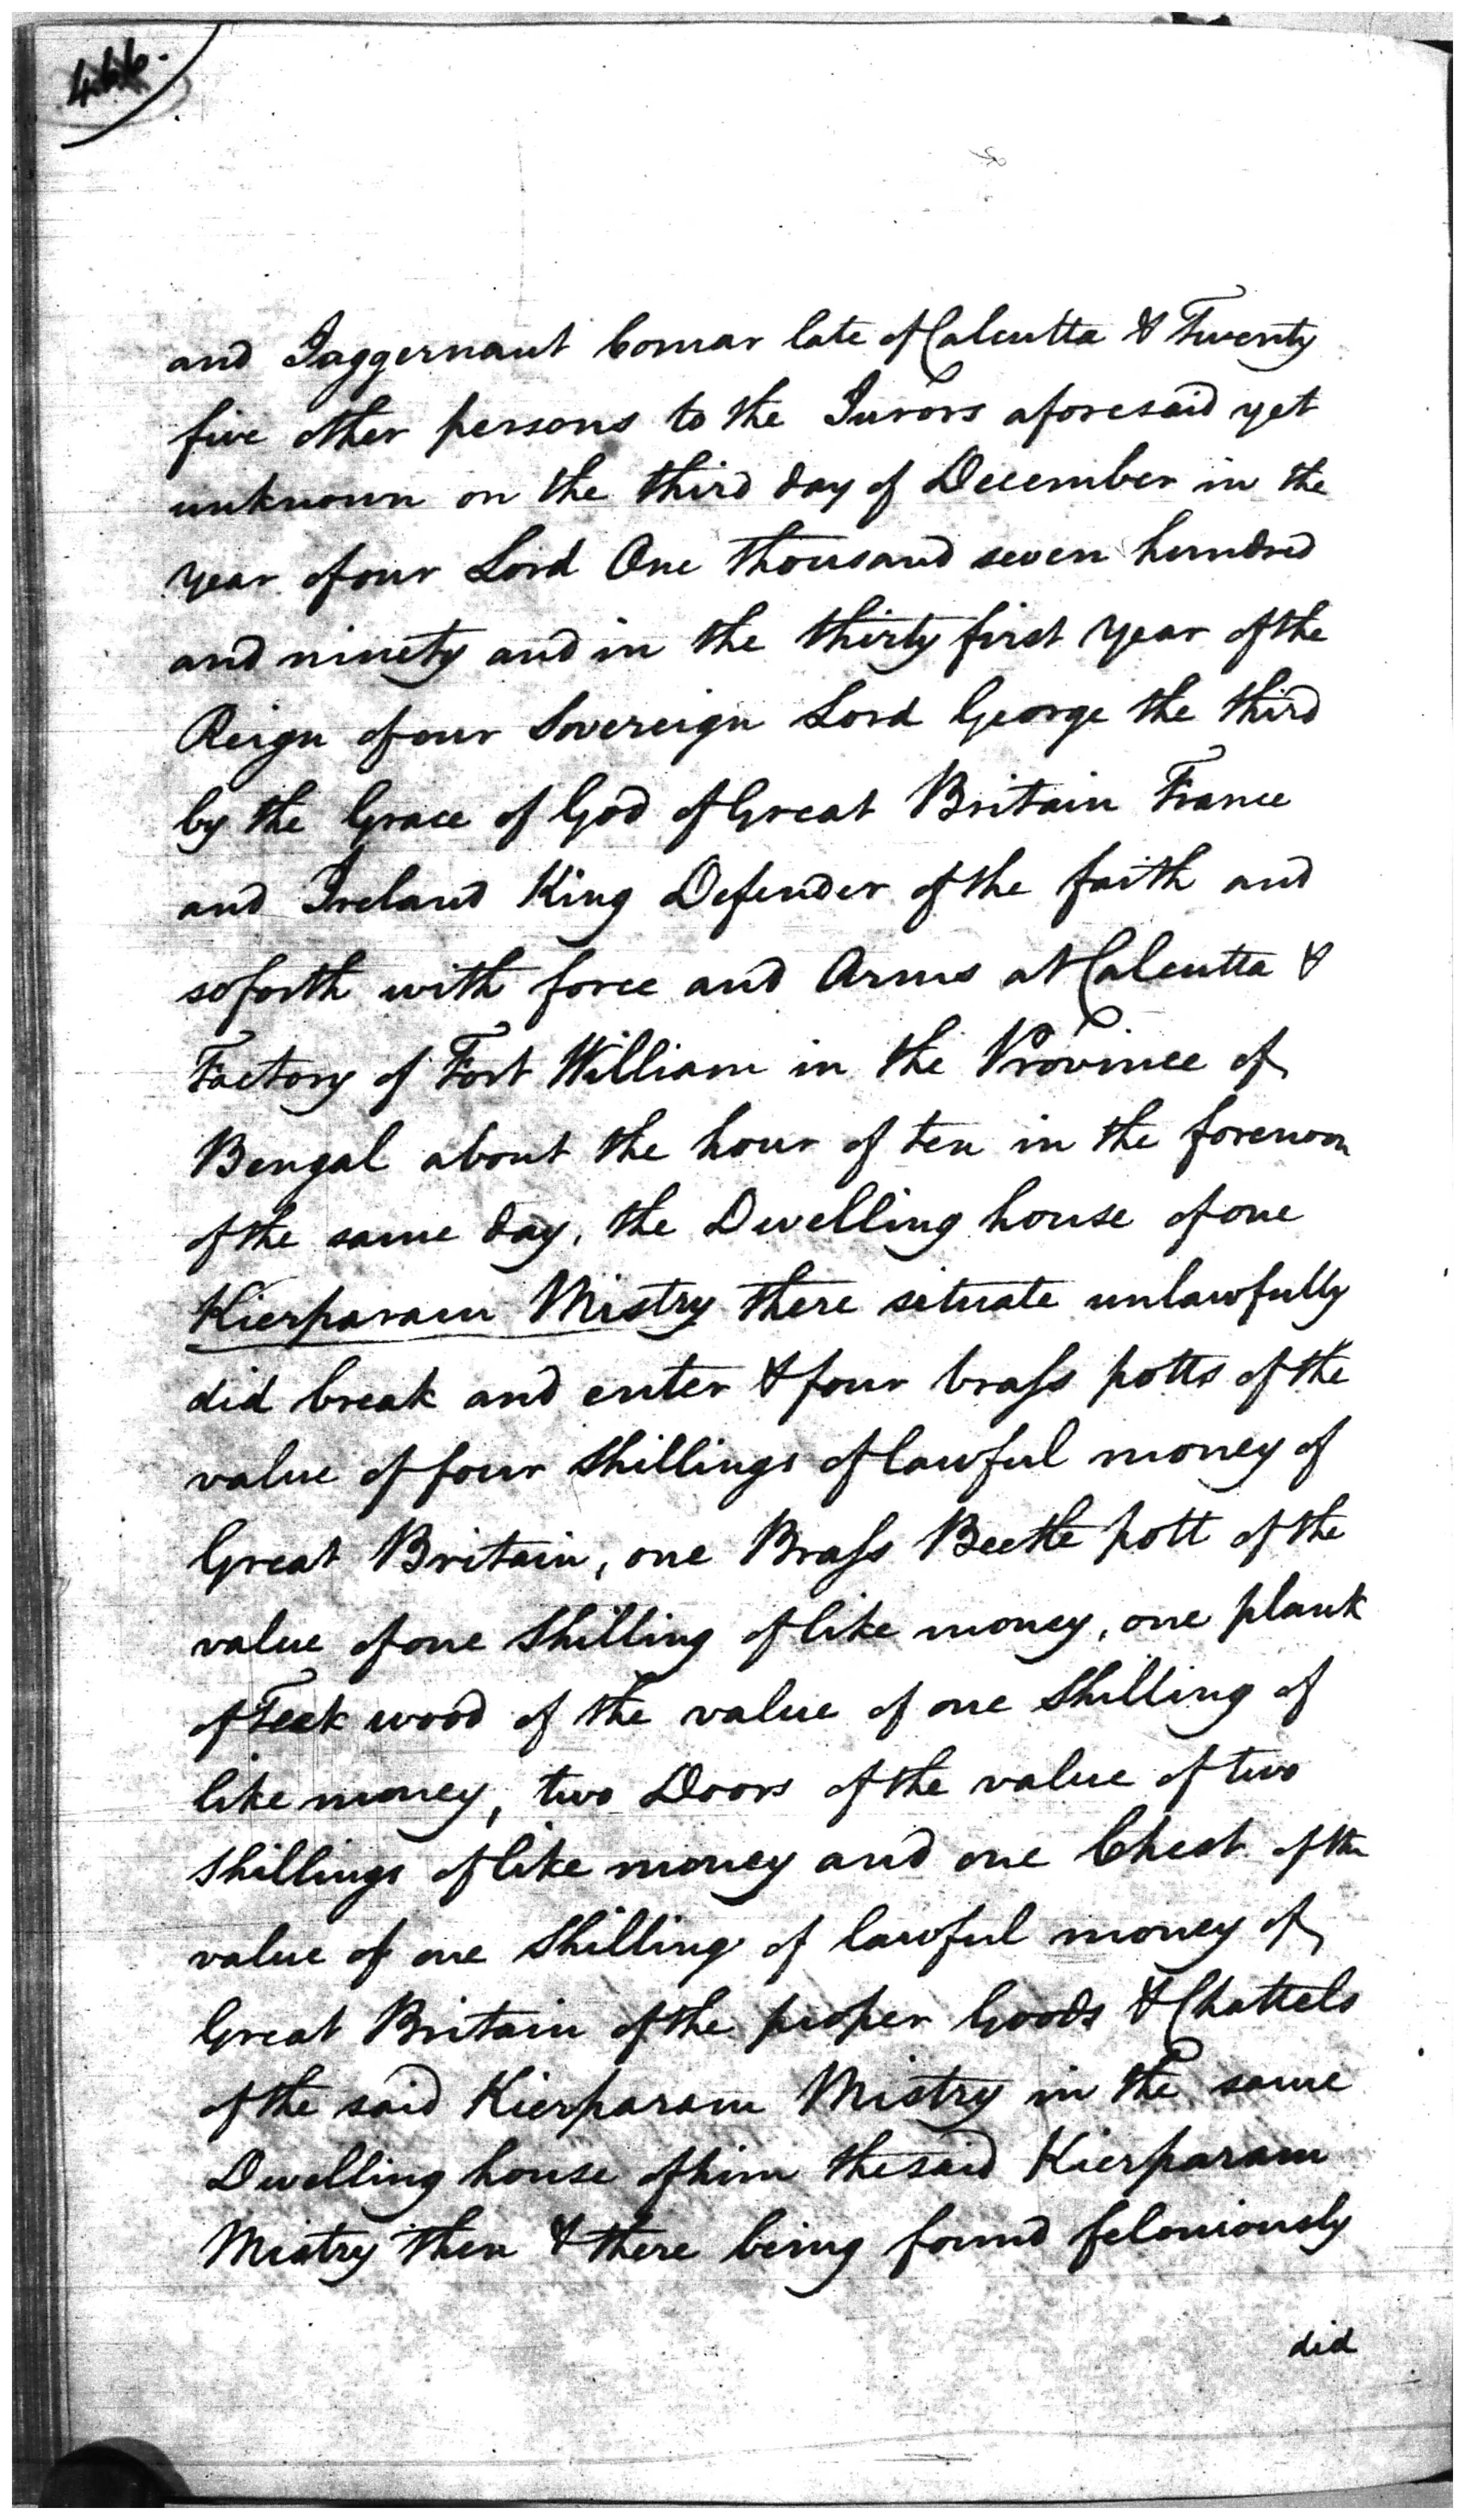 446.
and Jaggernaut Comar late of Calcutta & Twenty
five other persons to the Jurors aforesaid yet
unknown on the third day of December in the
year of our Lord One thousand seven hundred
and ninety and in the thirty first year of the
Reign of our Sovereign Lord George the third
by the Grace of God of Great Britain France
and Ireland King Defender of the faith and
soforth with force and Arms at Calcutta &
Factory of Fort William in the Province of
Bengal about the hour of ten in the forenoon
of the same day, the Dwelling house of one
Kierparam Mistry there situate unlawfully
did break and enter & four brass potts of the
value of four Shillings of lawful money of
Great Britain, one Brass Beetle pott of the
value of one Shilling of like money, one plank
of Teek wood of the value of one Shilling of
like money, two Doors of the value of two
shillings of like money and one Chest of the
value of one Shilling of lawful money of
Great Britain of the proper Goods & Chattels
of the said Kierparam Mistry in the same
Dwelling house of him the said Kierparam
Mistry then & there being found feloniously
did